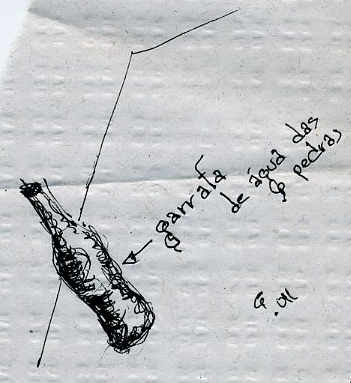 garrafa
de água das
pedras